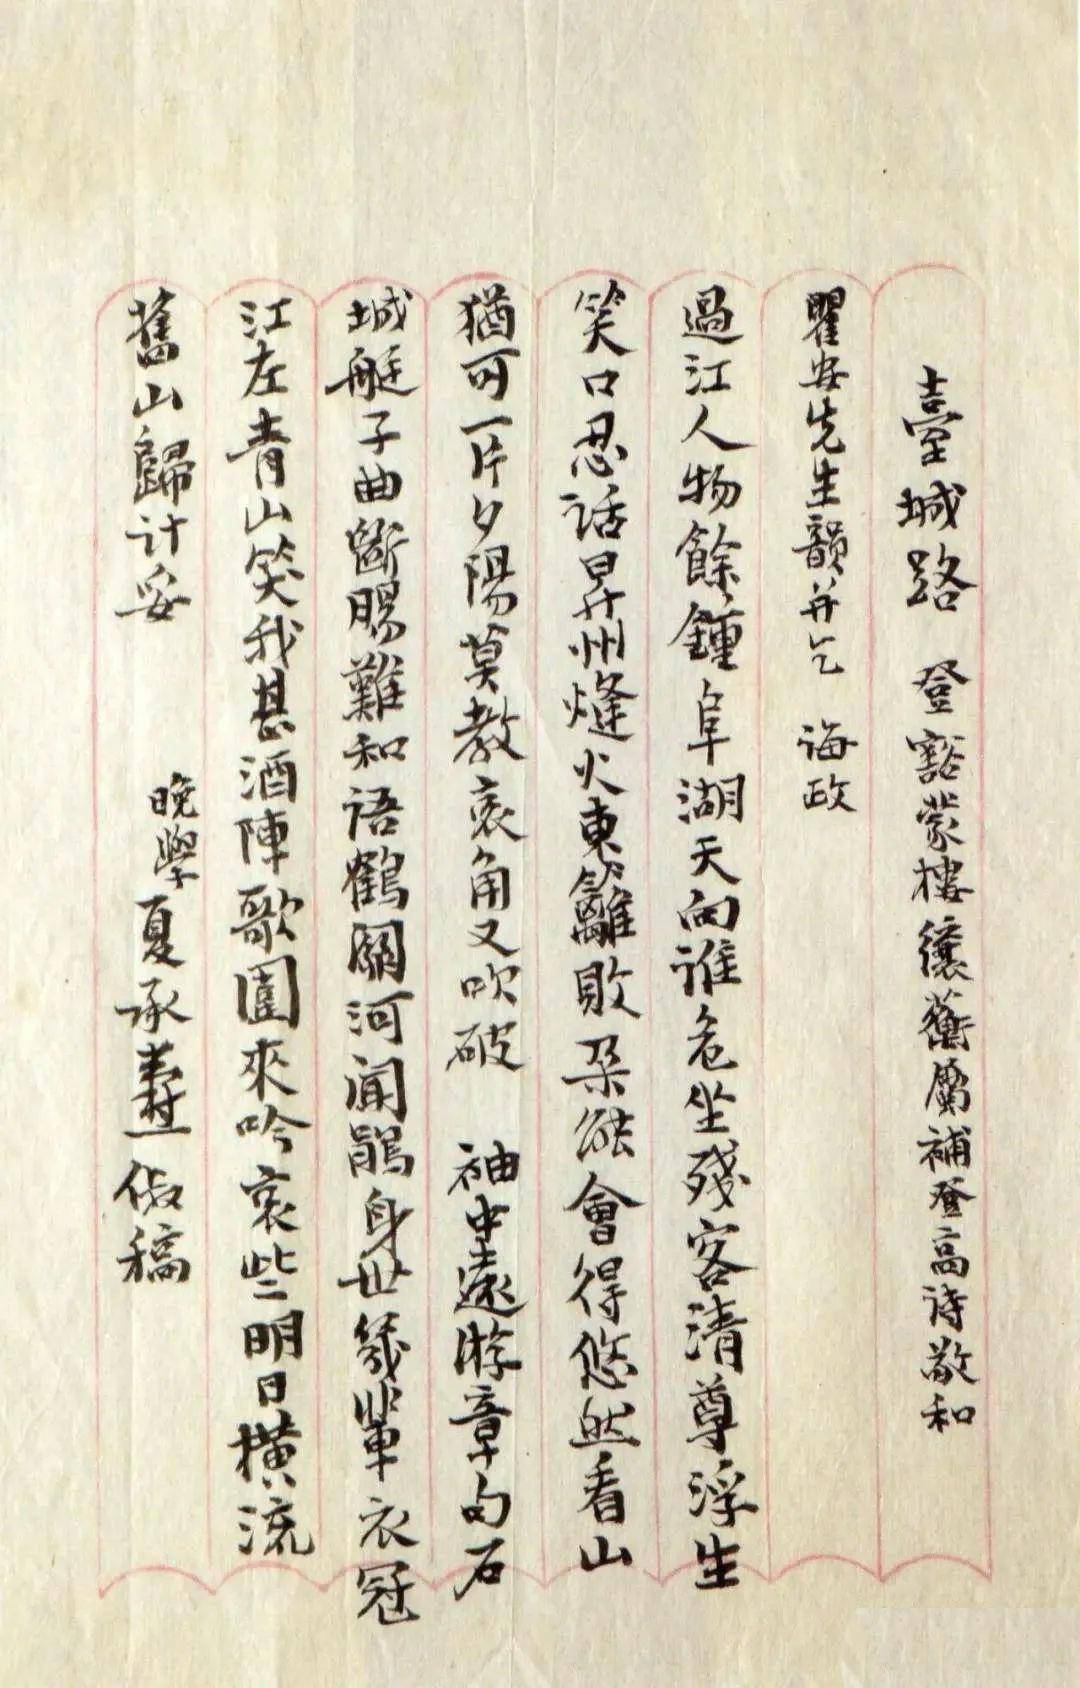 臺城路　登豁蒙樓纕蘅屬補登高詩敬和
瞿安先生韻并乞　誨政
過江人物餘鍾阜湖天向誰危坐殘客清尊浮生
笑口忍話昇州烽火東籬敗朶能會得悠然看山
猶可一片夕陽莫教哀角又吹破　袖中遠游章句石
城艇子曲斷腸難和語鶴關河聞鵑身世幾輩衣冠
江左青山笑我甚酒陣歌圍來吟哀些明日橫流
舊山歸計妥　晚學夏承燾俶稿